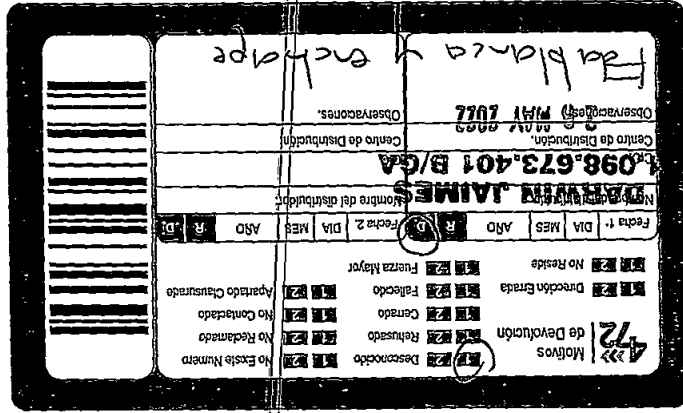 472
Motivos
de Devolución
Desconocido
Rehusado
Cerrado
Fallecido
Fuerza Mayor
No Existe Numero
No Reclamado
No Contactado
Apartado Clausurado
Dirección Errada
No Reside
Fecha 1: DIA MES AÑO R D
Fecha 2: DIA MES AÑO R D
DARWIN JAIMES
Nombre del distribuidor:
1.098.673.401 B/GA
Centro de Distribución:
Centro de Distribución:
Observaciones:
MAY 2022
Observaciones:
blanca y enchape